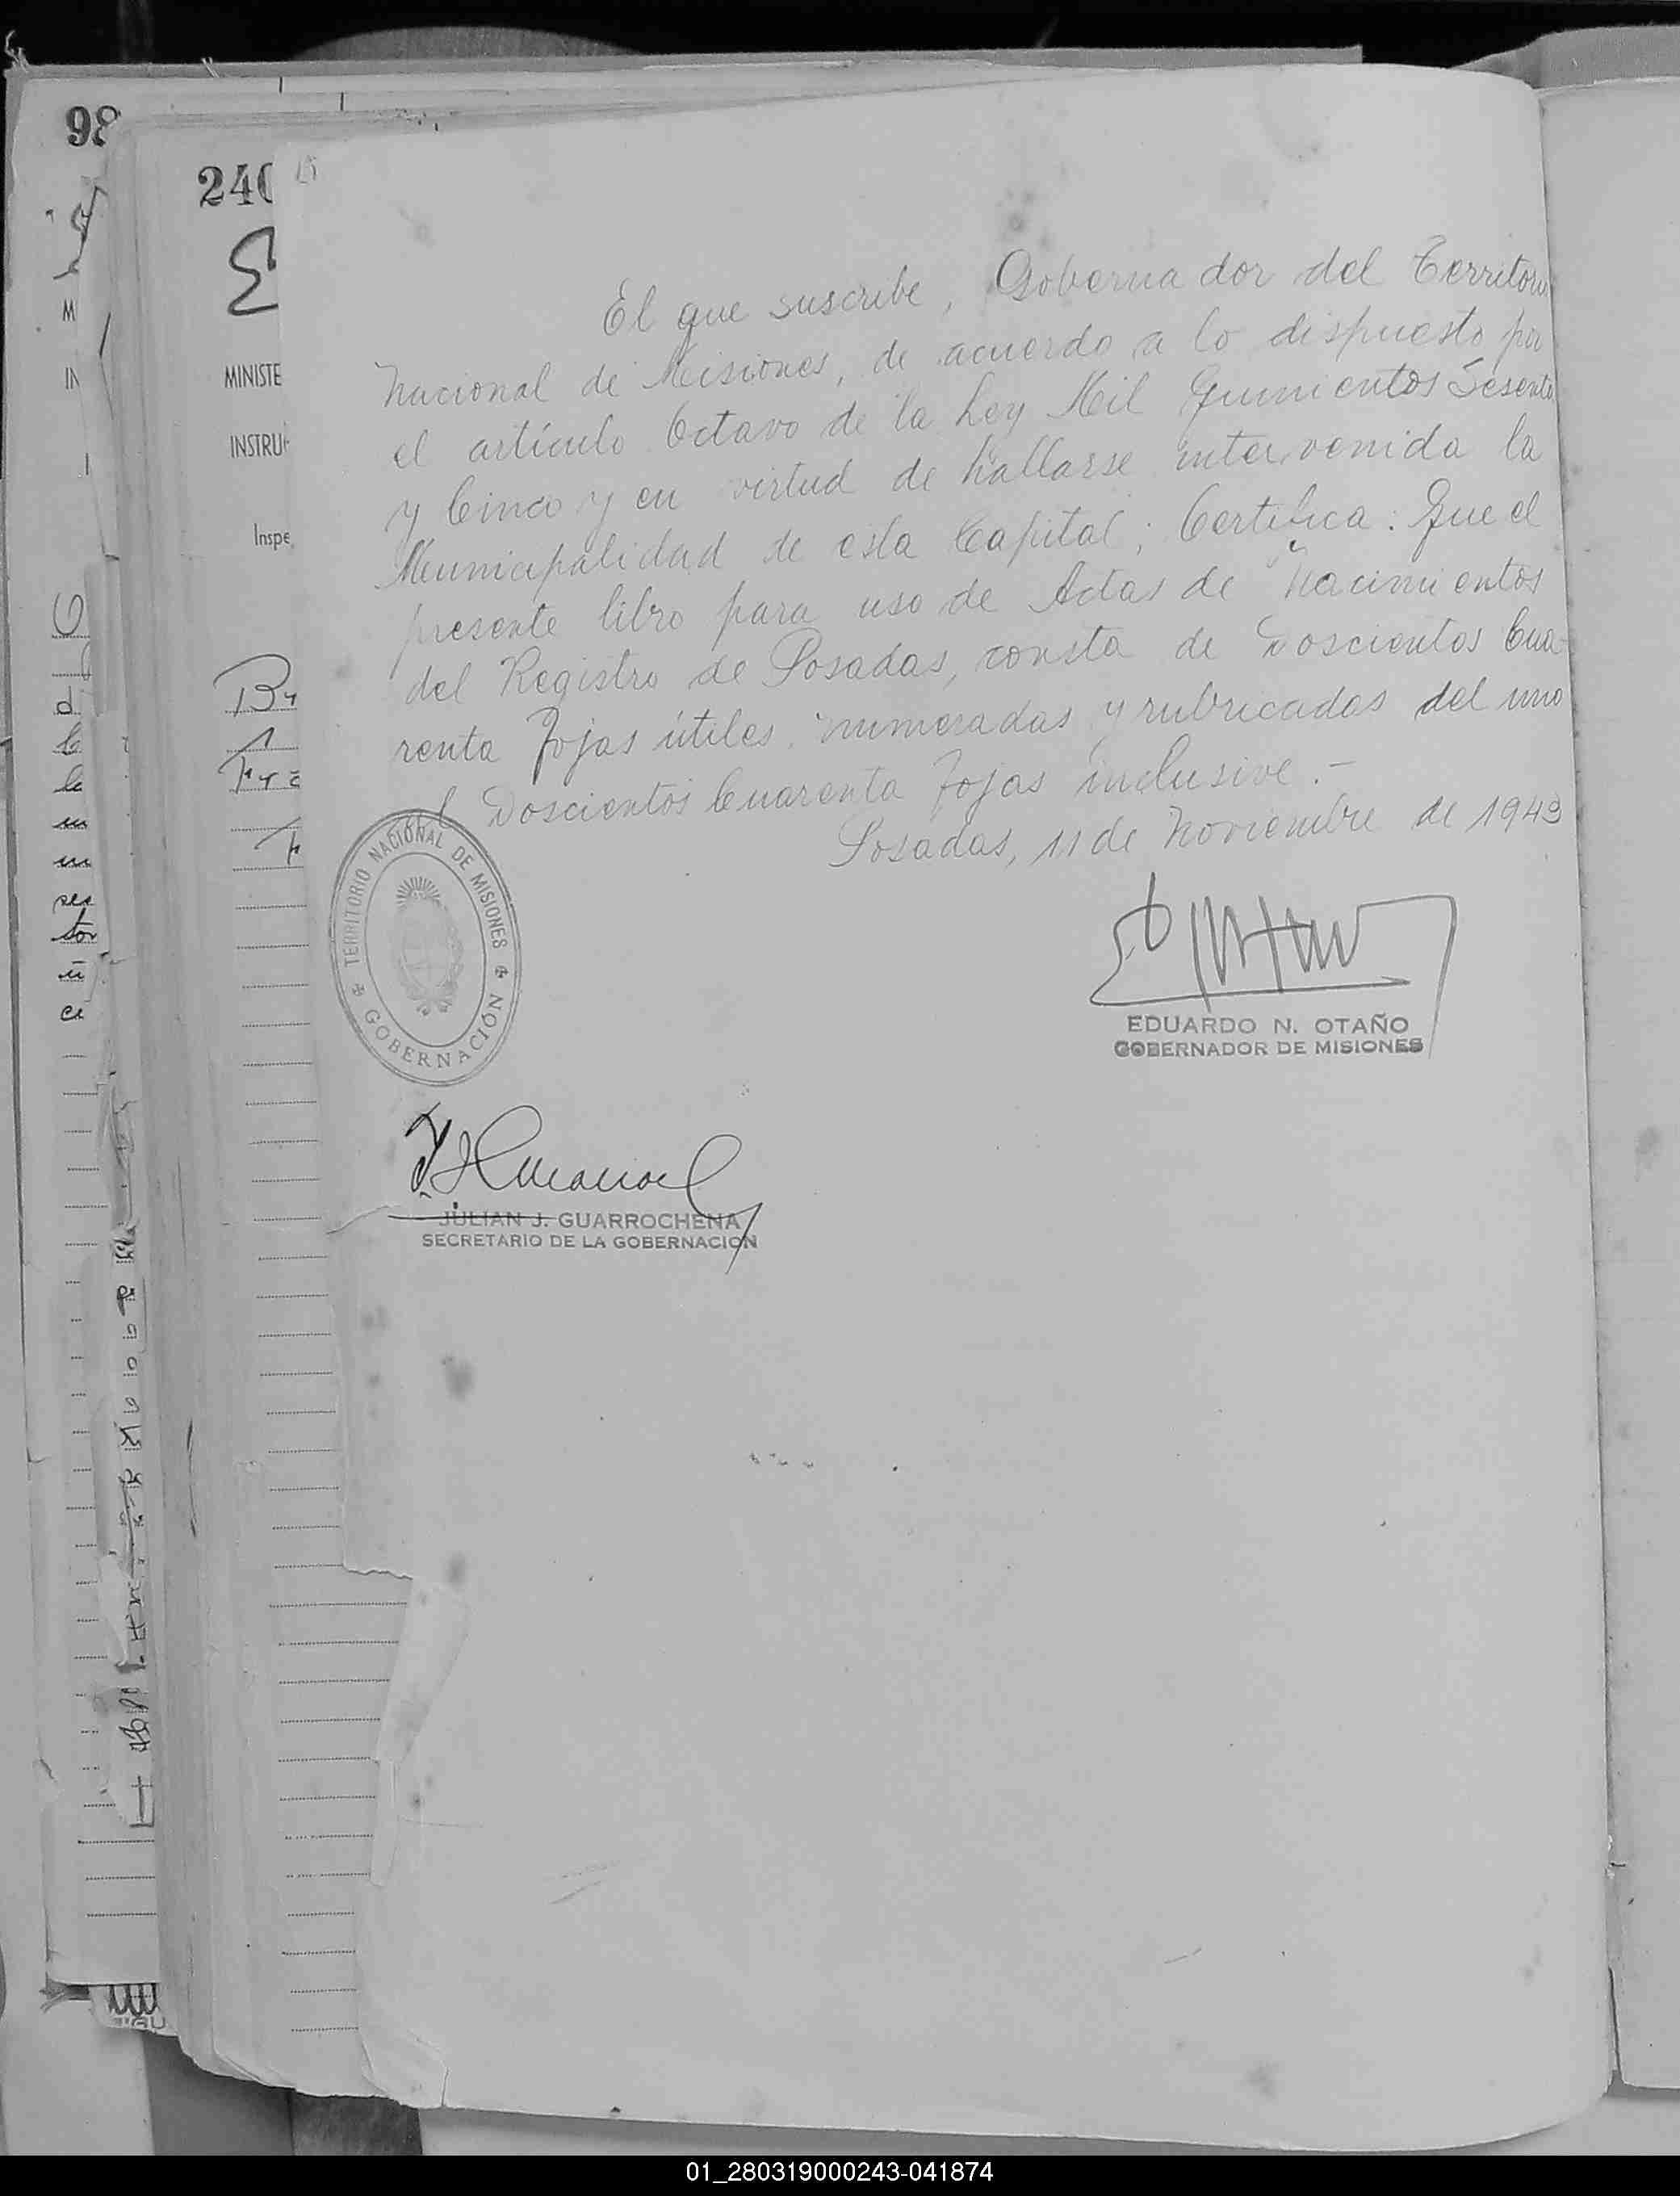 98
240
MINISTE
INSTRU
Inspe
El que suscribe, Gobernador del Territorio
Nacional de Misiones, de acuerdo a lo dispuesto por
el artículo Octavo de la Ley Mil Quinientos Sesenta
y Cinco y en virtud de hallarse intervenida la
Municipalidad de esta Capital; Certifica: Que el
presente libro para uso de Actas de Nacimientos
del Registro de Posadas, consta de Doscientos Cua-
renta fojas útiles, numeradas y rubricadas del uno
al Doscientos Cuarenta fojas inclusive.-
Posadas, 11 de Noviembre de 1943
TERRITORIO NACIONAL DE MISIONES
GOBERNACIÓN
EDUARDO N. OTAÑO
GOBERNADOR DE MISIONES
JULIAN J. GUARROCHENA
SECRETARIO DE LA GOBERNACION
01_280319000243-041874